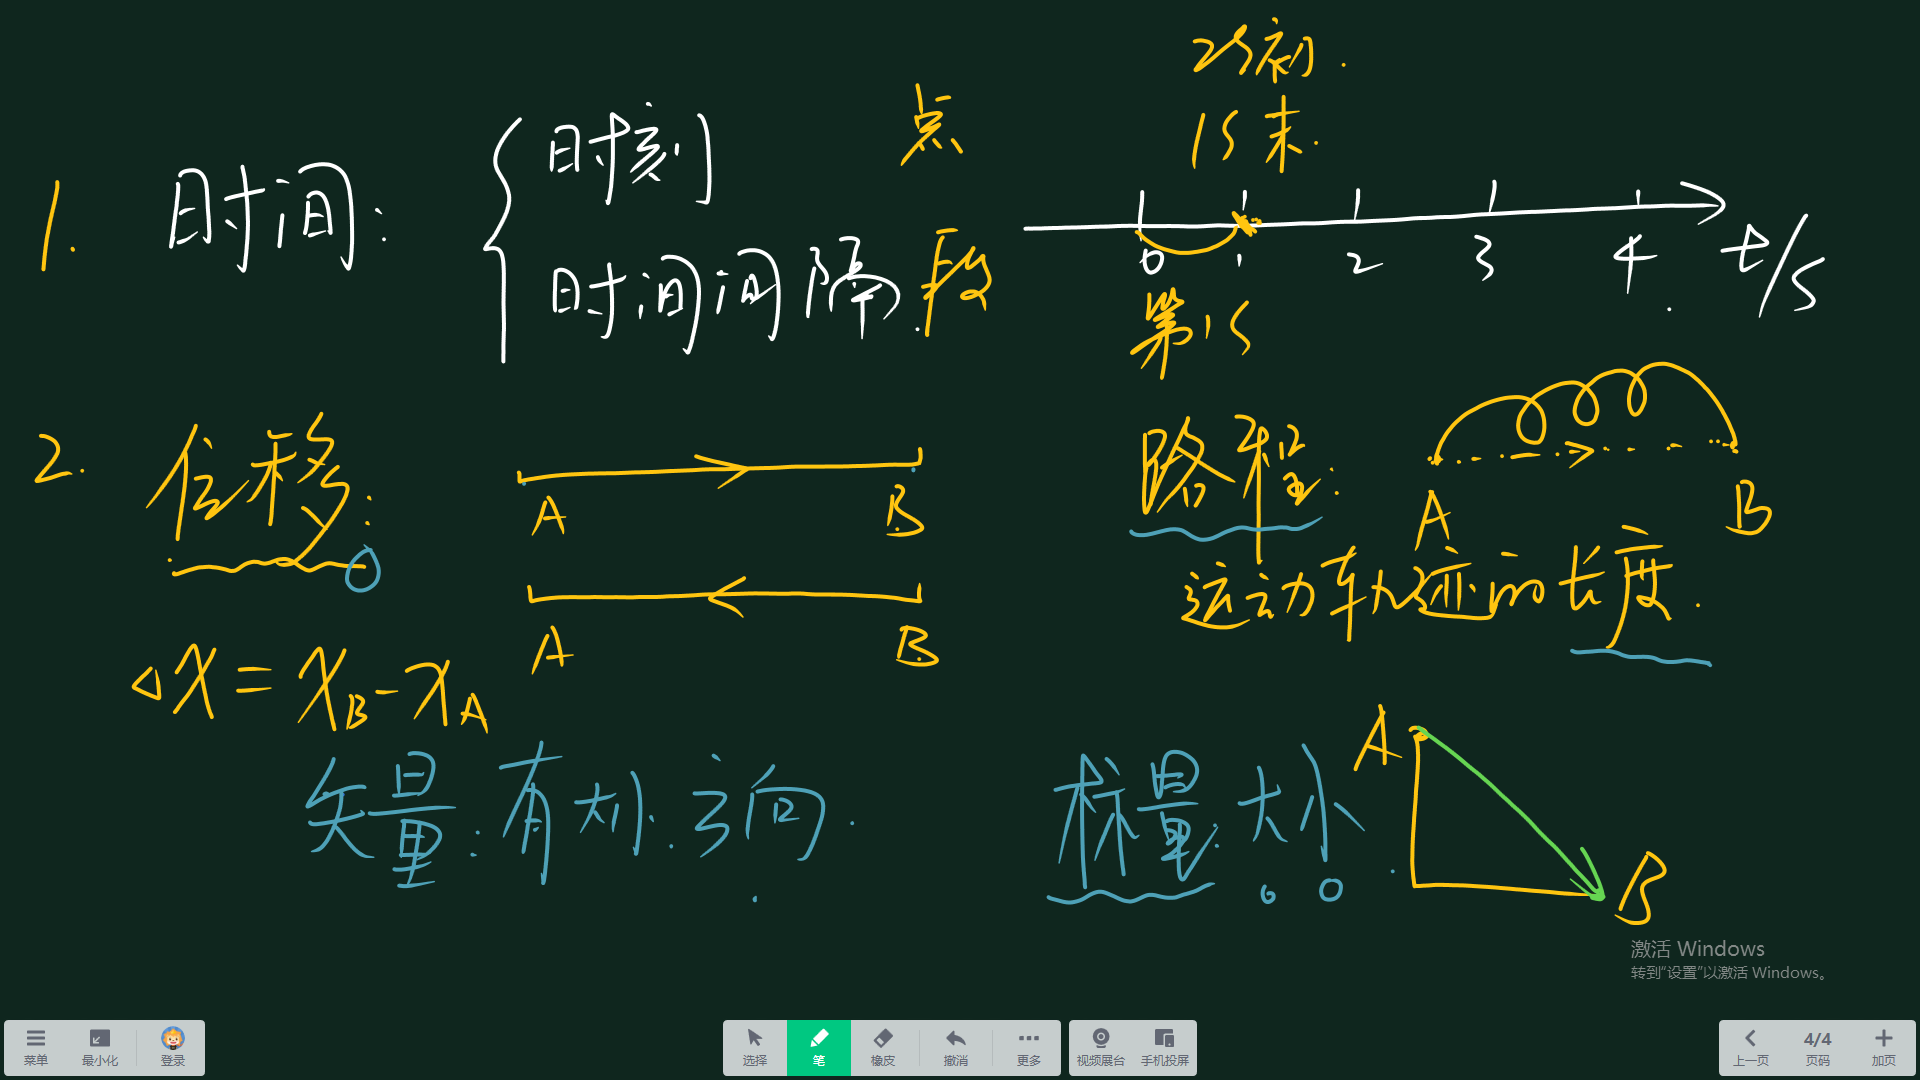 2s初.
1s末.
1. 时间: 时刻 点
时间间隔. 段
0 1 2 3 4 t/s
第1s
2. 位移:
A B
A B
△x = xB - xA
路程:
A B
运动轨迹的长度.
矢量: 有大小. 方向.
标量: 大小.
A
B
激活 Windows
转到"设置"以激活 Windows。
菜单 最小化 登录 选择 笔 橡皮 撤消 更多 视频展台 手机投屏 上一页 4/4 页码 加页